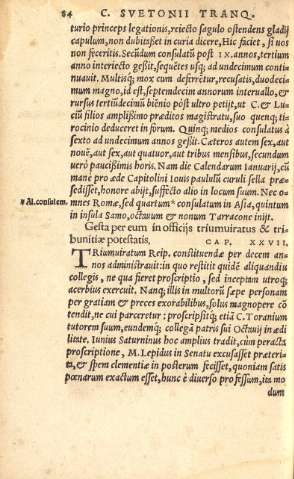 84 C. SVETONII TRANQ.
turio princeps legationis, reiecto sagulo ostendens gladij
capulum, non dubitasset in curia dicere, Hic faciet, si uos
non feceritis. Secundum consulatũ post IX. annos, tertium
anno interiecto gessit, sequẽtes usq; ad undecimum conti-
nuauit. Multisq; mox cum deferrẽtur, recusatis, duodeci-
mum magno, id est, septemdecim annorum interuallo, &
rursus tertiũdecimũ biẽnio pòst ultro petijt, ut C. & Lu-
ciũ filios amplissimo præditos magistratu, suo quenq; ti-
rocinio deduceret in forum. Quinq; medios consulatus à
sexto ad undecimum annos gessit. Cæteros autem sex, aut
nouẽ, aut sex, aut quatuor, aut tribus mensibus, secundum
uerò paucissimis horis. Nam die Calendarum Ianuarij, cũ
manè pro æde Capitolini Iouis paululũ curuli sella præ-
sedisset, honore abijt, suffecto alio in locum suum. Nec o-
* Al. consulem. mnes Romæ, sed quartum* consulatum in Asia, quintum
in insula Samo, octauum & nonum Tarracone inijt.
Gesta per eum in officijs triumuiratus & tri-
bunitiæ potestatis. CAP. XXVII.
TRiumuiratum Reip. constituendæ per decem an-
nos administrauit: in quo restitit quidẽ aliquandiu
collegis, ne qua fieret proscriptio, sed inceptam utroq;
acerbius exercuit. Nanq; illis in multorũ sæpe personam
per gratiam & preces exorabilibus, solus magnopere cõ
tendit, ne cui parceretur: proscripsitq; etiã C. Toranium
tutorem suum, eundemq; collegã patris sui Octauij in ædi
litate. Iunius Saturninus hoc amplius tradit, cùm peracta
proscriptione, M. Lepidus in Senatu excusasset præteri-
ta, & spem clementiæ in posterum fecisset, quoniam satis
pœnarum exactum esset, hunc è diuerso professum, ita mo
dum